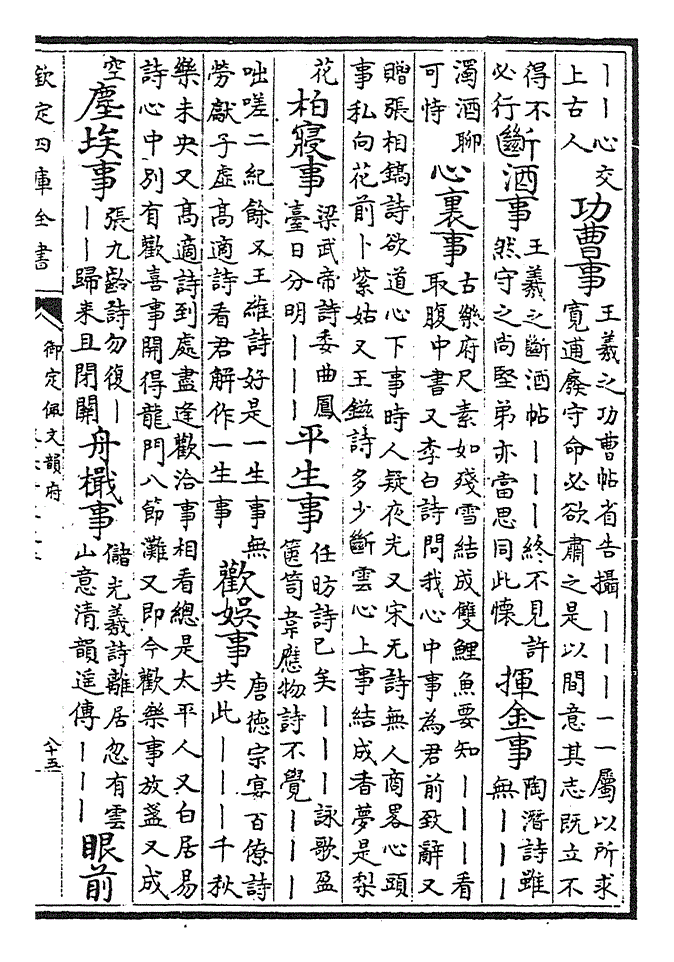 ｜｜心交上古人 功曹事 王羲之功曹帖省告攝｜｜｜一一屬以所求寛逋廢守命必欲肅之是以間意其志既立不
得不必行 斷酒事 王羲之斷酒帖｜｜｜終不見許然守之尚堅弟亦當思同此懷 揮金事 陶潛詩雖無｜｜｜
濁酒聊可恃 心裏事 古樂府尺素如殘雪結成雙鯉魚要知｜｜｜看取腹中書又李白詩問我心中事為君前致辭又
贈張相鎬詩欲道心下事時人疑夜光又宋无詩無人商畧心頭事私向花前卜紫姑又王鎡詩多少斷雲心上事結成香夢是梨
花 柏寢事 梁武帝詩委曲鳳臺日分明｜｜｜ 平生事 任昉詩已矣｜｜｜詠歌盈篋笥韋應物詩不覺｜｜｜
咄嗟二紀餘又王維詩好是一生事無勞獻子虛高適詩看君解作一生事 歡娛事 唐德宗宴百僚詩共此｜｜｜千秋
樂未央又高適詩到處盡逢歡洽事相看總是太平人又白居易詩心中別有歡喜事開得龍門八節灘又即今歡樂事放盞又成
空 塵埃事 張九齡詩勿復｜｜｜歸來且閉關 舟檝事 儲光羲詩離居忽有雲山意清韻遥傳｜｜｜ 眼前
欽定四庫全書 御定佩文韻府 八十五